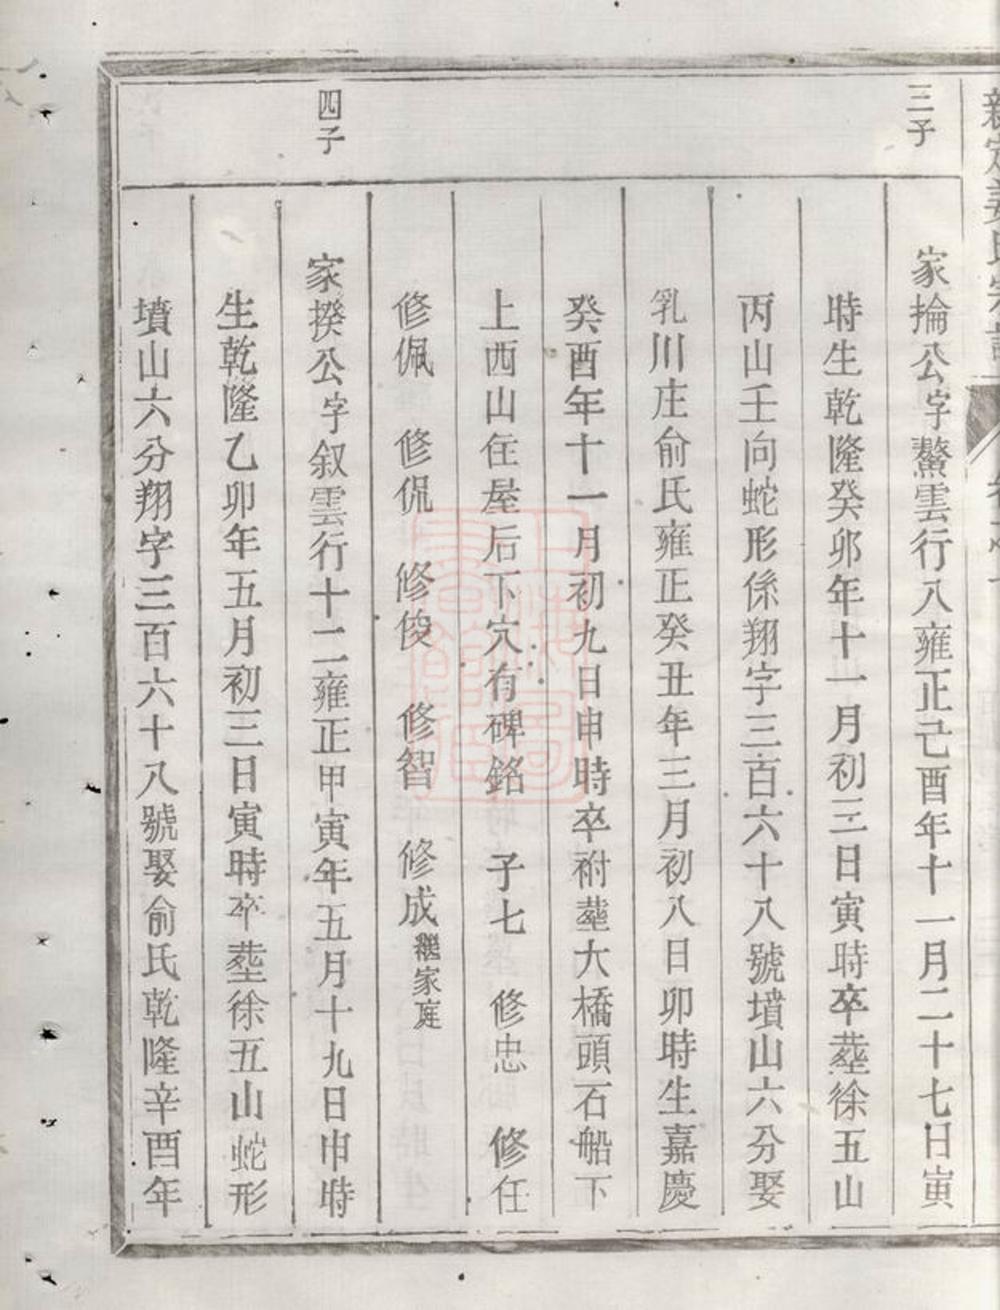 三子
家掄公字鰲雲行八雍正己酉年十一月二十七日寅
時生乾隆癸卯年十一月初三日寅時卒塟徐五山
丙山壬向蛇形係翔字三百六十八號墳山六分娶
乳川庄俞氏雍正癸丑年三月初八日卯時生嘉慶
癸酉年十一月初九日申時卒祔塟大橋頭石船下
上西山住屋后下穴有碑銘 子七 修忠 修任
修佩 修侃 修俊 修智 修成繼家庭
四子
家揆公字叙雲行十二雍正甲寅年五月十九日申時
生乾隆乙卯年五月初三日寅時卒塟徐五山蛇形
墳山六分翔字三百六十八號娶俞氏乾隆辛酉年